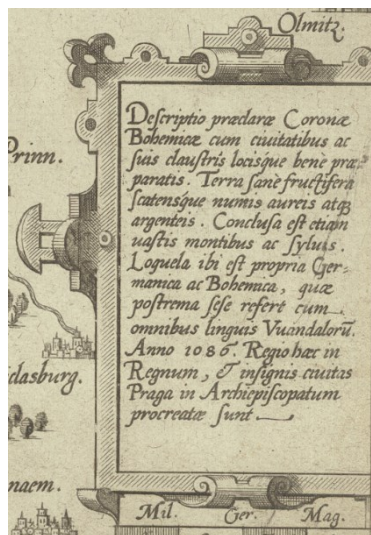 Olmitz.
Prinn.
Descriptio præclaræ Coronæ
Bohemicæ cum ciuitatibus ac
suis claustris locisque bene præ-
paratis. Terra sane fructifera
scatensque numis aureis atqꝫ
argenteis. Conclusa est etiam
uastis montibus ac syluis.
Loquela ibi est propria Ger-
manica ac Bohemica, quæ
postrema sese refert cum
omnibus linguis Vuandalorū.
Anno 1086. Regio hæc in
Regnum, & insignis ciuitas
Praga in Archiepiscopatum
procreatæ sunt
clasburg.
naem.
Mil. Ger. Mag.